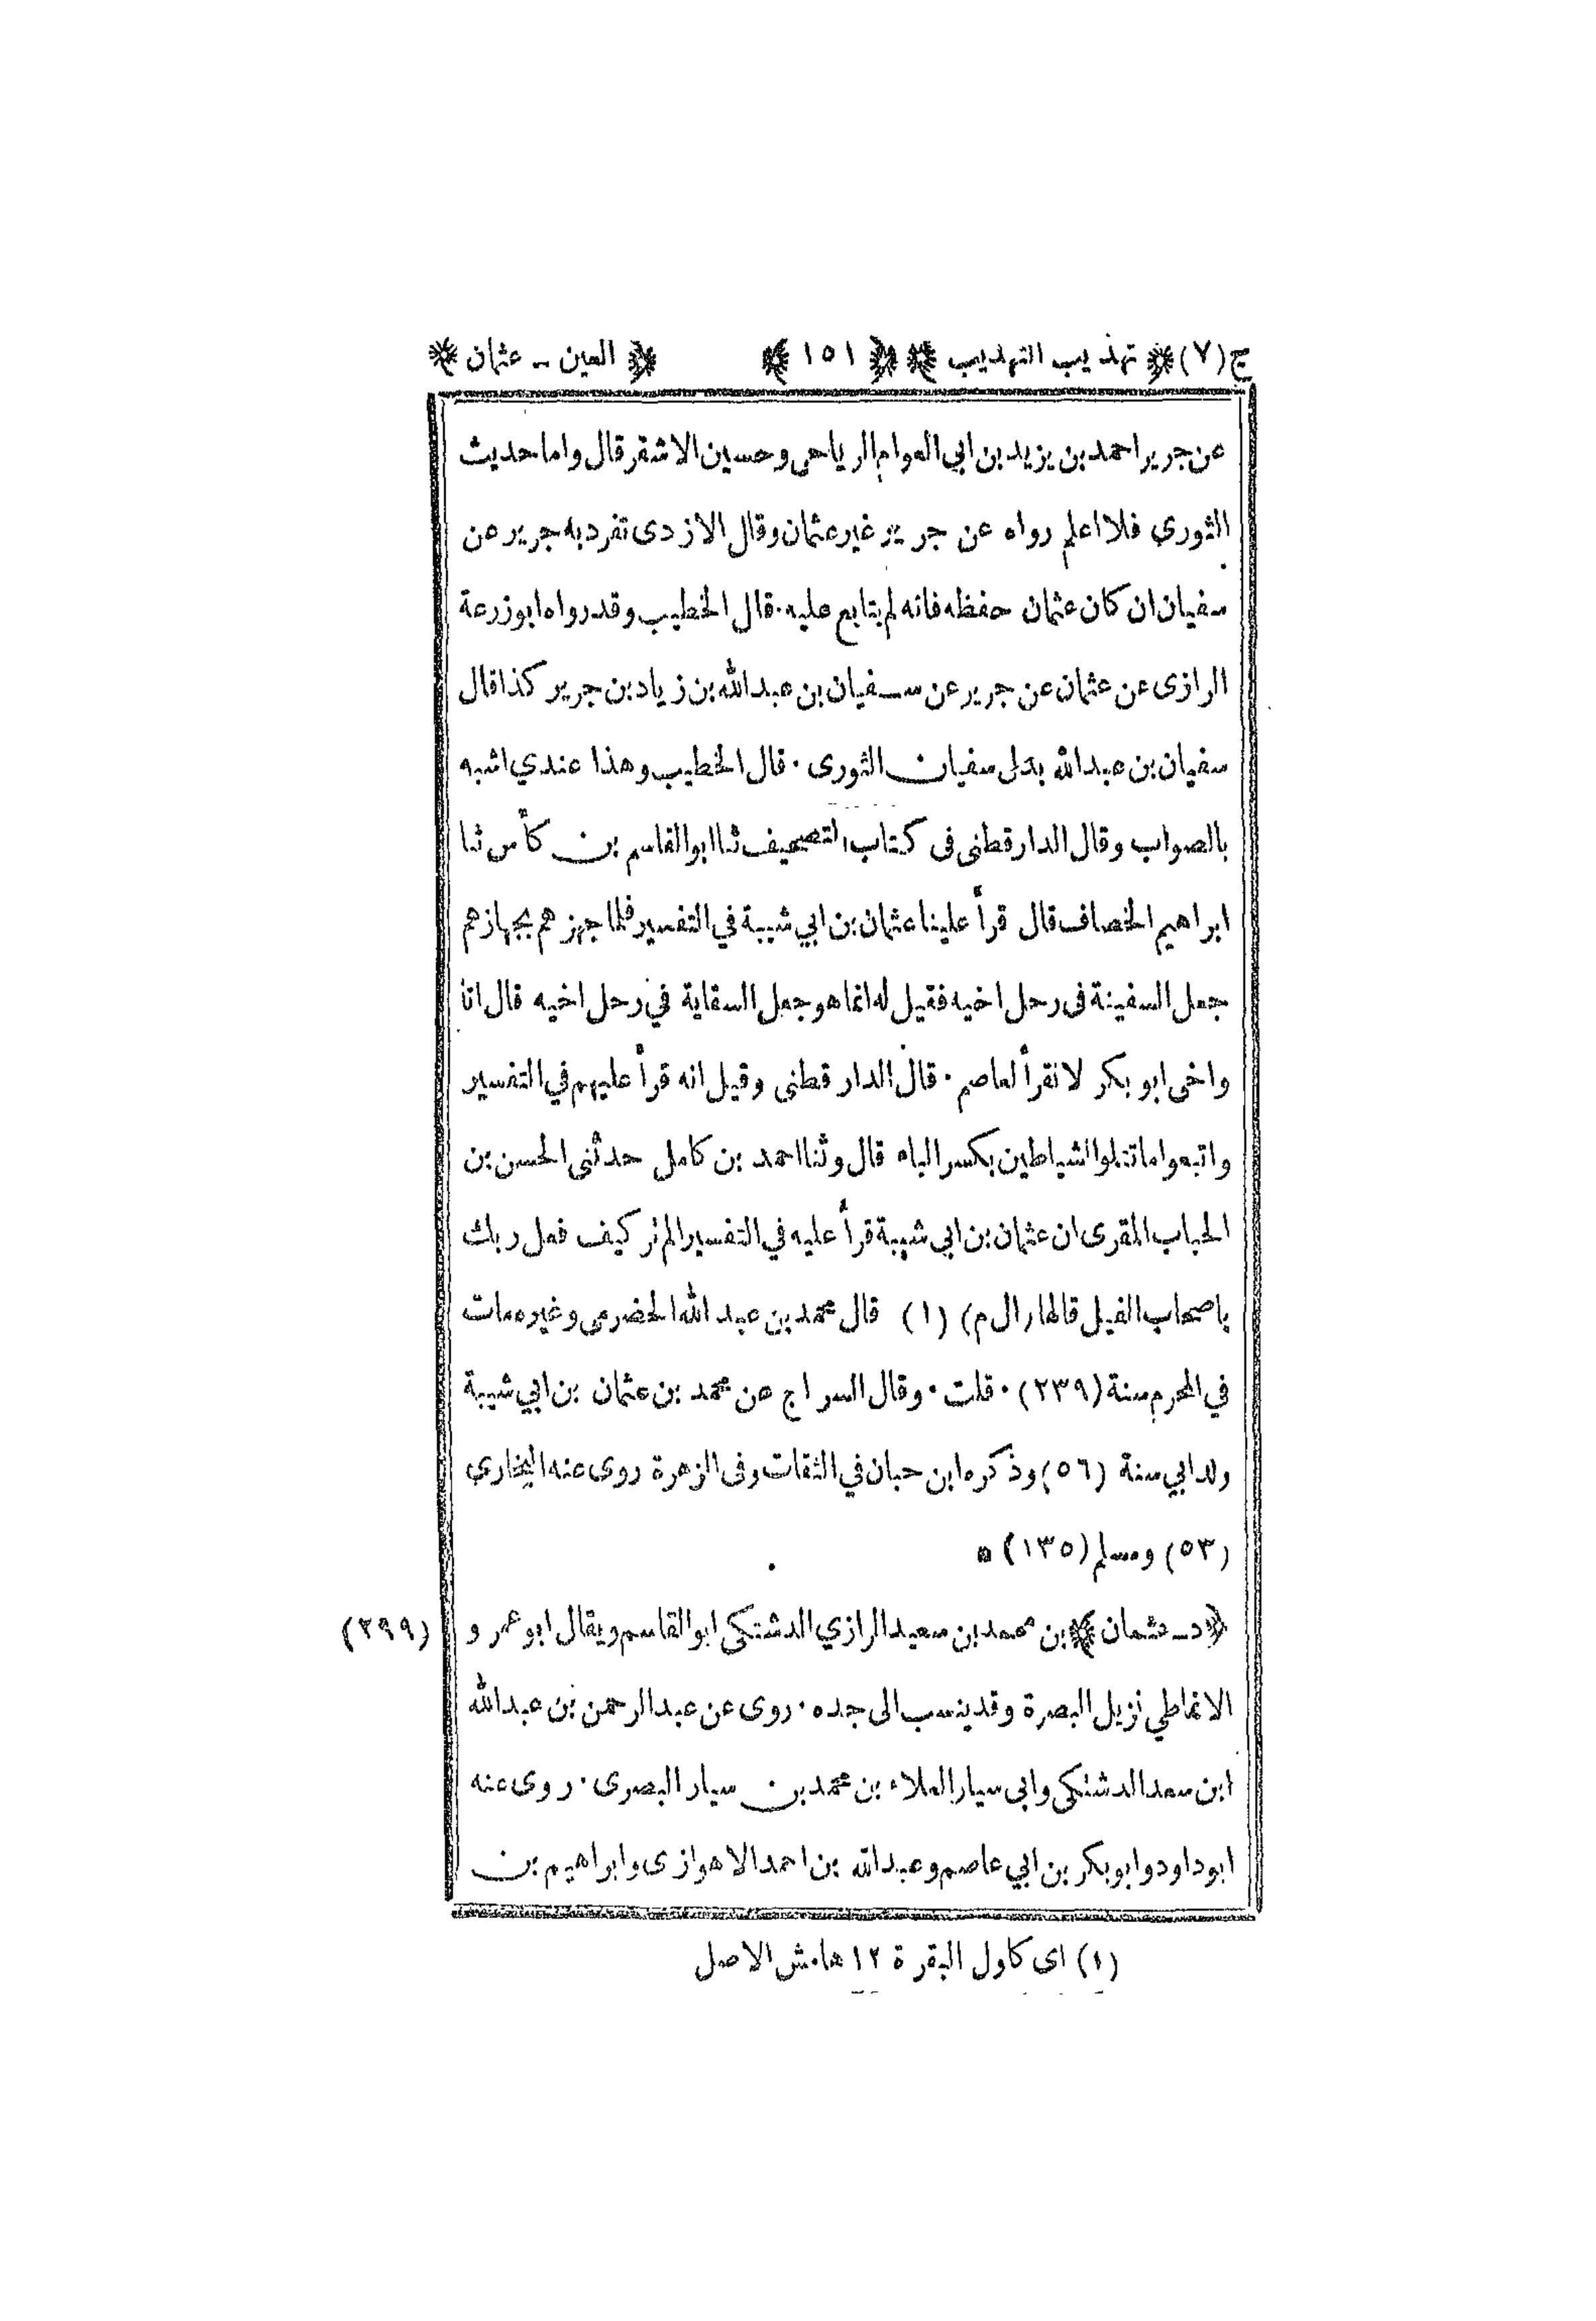 ج(٧) ﴿ تهذيب التهذيب ﴾ ﴿ ١٥١ ﴾ ﴿ العين ـ عثمان ﴾
عن جرير احمد بن يزيد بن ابي العوام الرياحى وحسين الاشقر قال واما حديث
الثوري فلا اعلم رواه عن جرير غير عثمان وقال الازدى تفرد به جرير عن
سفيان ان كان عثمان حفظه فانه لم يتابع عليه · قال الخطيب وقد رواه ابو زرعة
الرازى عن عثمان عن جرير عن سفيان بن عبد الله بن زياد بن جرير كذا قال
سفيان بن عبد الله بدل سفيان الثورى · قال الخطيب وهذا عندي اشبه
بالصواب وقال الدارقطنى فى كتاب التصحيف ثنا ابو القاسم بن كأس ثنا
ابراهيم الخصاف قال قرأ علينا عثمان بن ابي شيبة في التفسير فلما جهزهم بجهازهم
جعل السفينة فى رحل اخيه فقيل له انما هو جعل السقاية في رحل اخيه قال انا
واخى ابو بكر لا نقرأ لعاصم · قال الدار قطنى وقيل انه قرأ عليهم في التفسير
واتبعوا ما تتلوا الشياطين بكسر الباء قال وثنا احمد بن كامل حدثنى الحسن بن
الحباب المقرى ان عثمان بن ابي شيبة قرأ عليه في التفسير الم تر كيف فعل ربك
باصحاب الفيل قالها (ال م) (١) قال محمد بن عبد الله الحضرمى وغيره مات
في المحرم سنة (٢٣٩) · قلت · وقال السراج عن محمد بن عثمان بن ابي شيبة
ولد ابي سنة (٥٦) وذكره ابن حبان في الثقات وفى الزهرة روى عنه البخاري
(٥٣) ومسلم (١٣٥) *
﴿ د ـ عثمان ﴾ بن محمد بن سعيد الرازي الدشتكى ابو القاسم ويقال ابو عمر و (٢٩٩)
الانماطي نزيل البصرة وقد ينسب الى جده · روى عن عبد الرحمن بن عبد الله
ابن سعد الدشتكى وابى سيار العلاء بن محمد بن سيار البصرى · روى عنه
ابو داود وابو بكر بن ابي عاصم وعبد الله بن احمد الاهوازى وابراهيم بن
(١) اى كاول البقرة ١٢ هامش الاصل